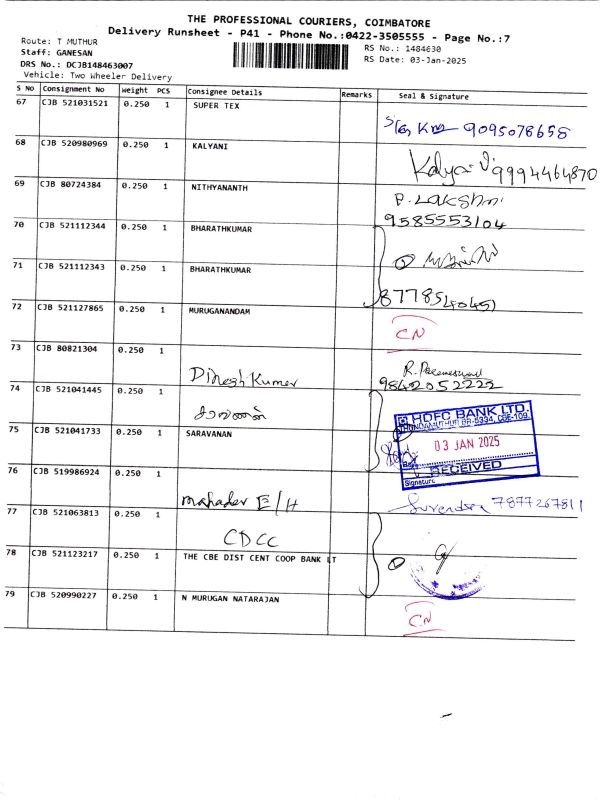 THE PROFESSIONAL COURIERS, COIMBATORE
Delivery Runsheet - P41 - Phone No.:0422-3505555 - Page No.:7
Route: T MUTHUR
Staff: GANESAN
DRS No.: DCJB148463007
Vehicle: Two Wheeler Delivery
RS No.: 1484630
RS Date: 03-Jan-2025
S NO Consignment No Weight PCS Consignee Details Remarks Seal & Signature
67 CJB 521031521 0.250 1 SUPER TEX
9095078658
68 CJB 520980969 0.250 1 KALYANI
Kalya 9994464870
69 CJB 80724384 0.250 1 NITHYANANTH
P. Lakshmi
9585553104
70 CJB 521112344 0.250 1 BHARATHKUMAR
71 CJB 521112343 0.250 1 BHARATHKUMAR
877854045)
72 CJB 521127865 0.250 1 MURUGANANDAM
CN
73 CJB 80821304 0.250 1 Dinesh Kumar
9842052222
74 CJB 521041445 0.250 1 சரவணன்
75 CJB 521041733 0.250 1 SARAVANAN
HDFC BANK LTD.
03 JAN 2025
RECEIVED
Signature
76 CJB 519986924 0.250 1 Mahadev E/H
Surendra 7877267811
77 CJB 521063813 0.250 1 CDCC
78 CJB 521123217 0.250 1 THE CBE DIST CENT COOP BANK LT
79 CJB 520990227 0.250 1 N MURUGAN NATARAJAN
CN